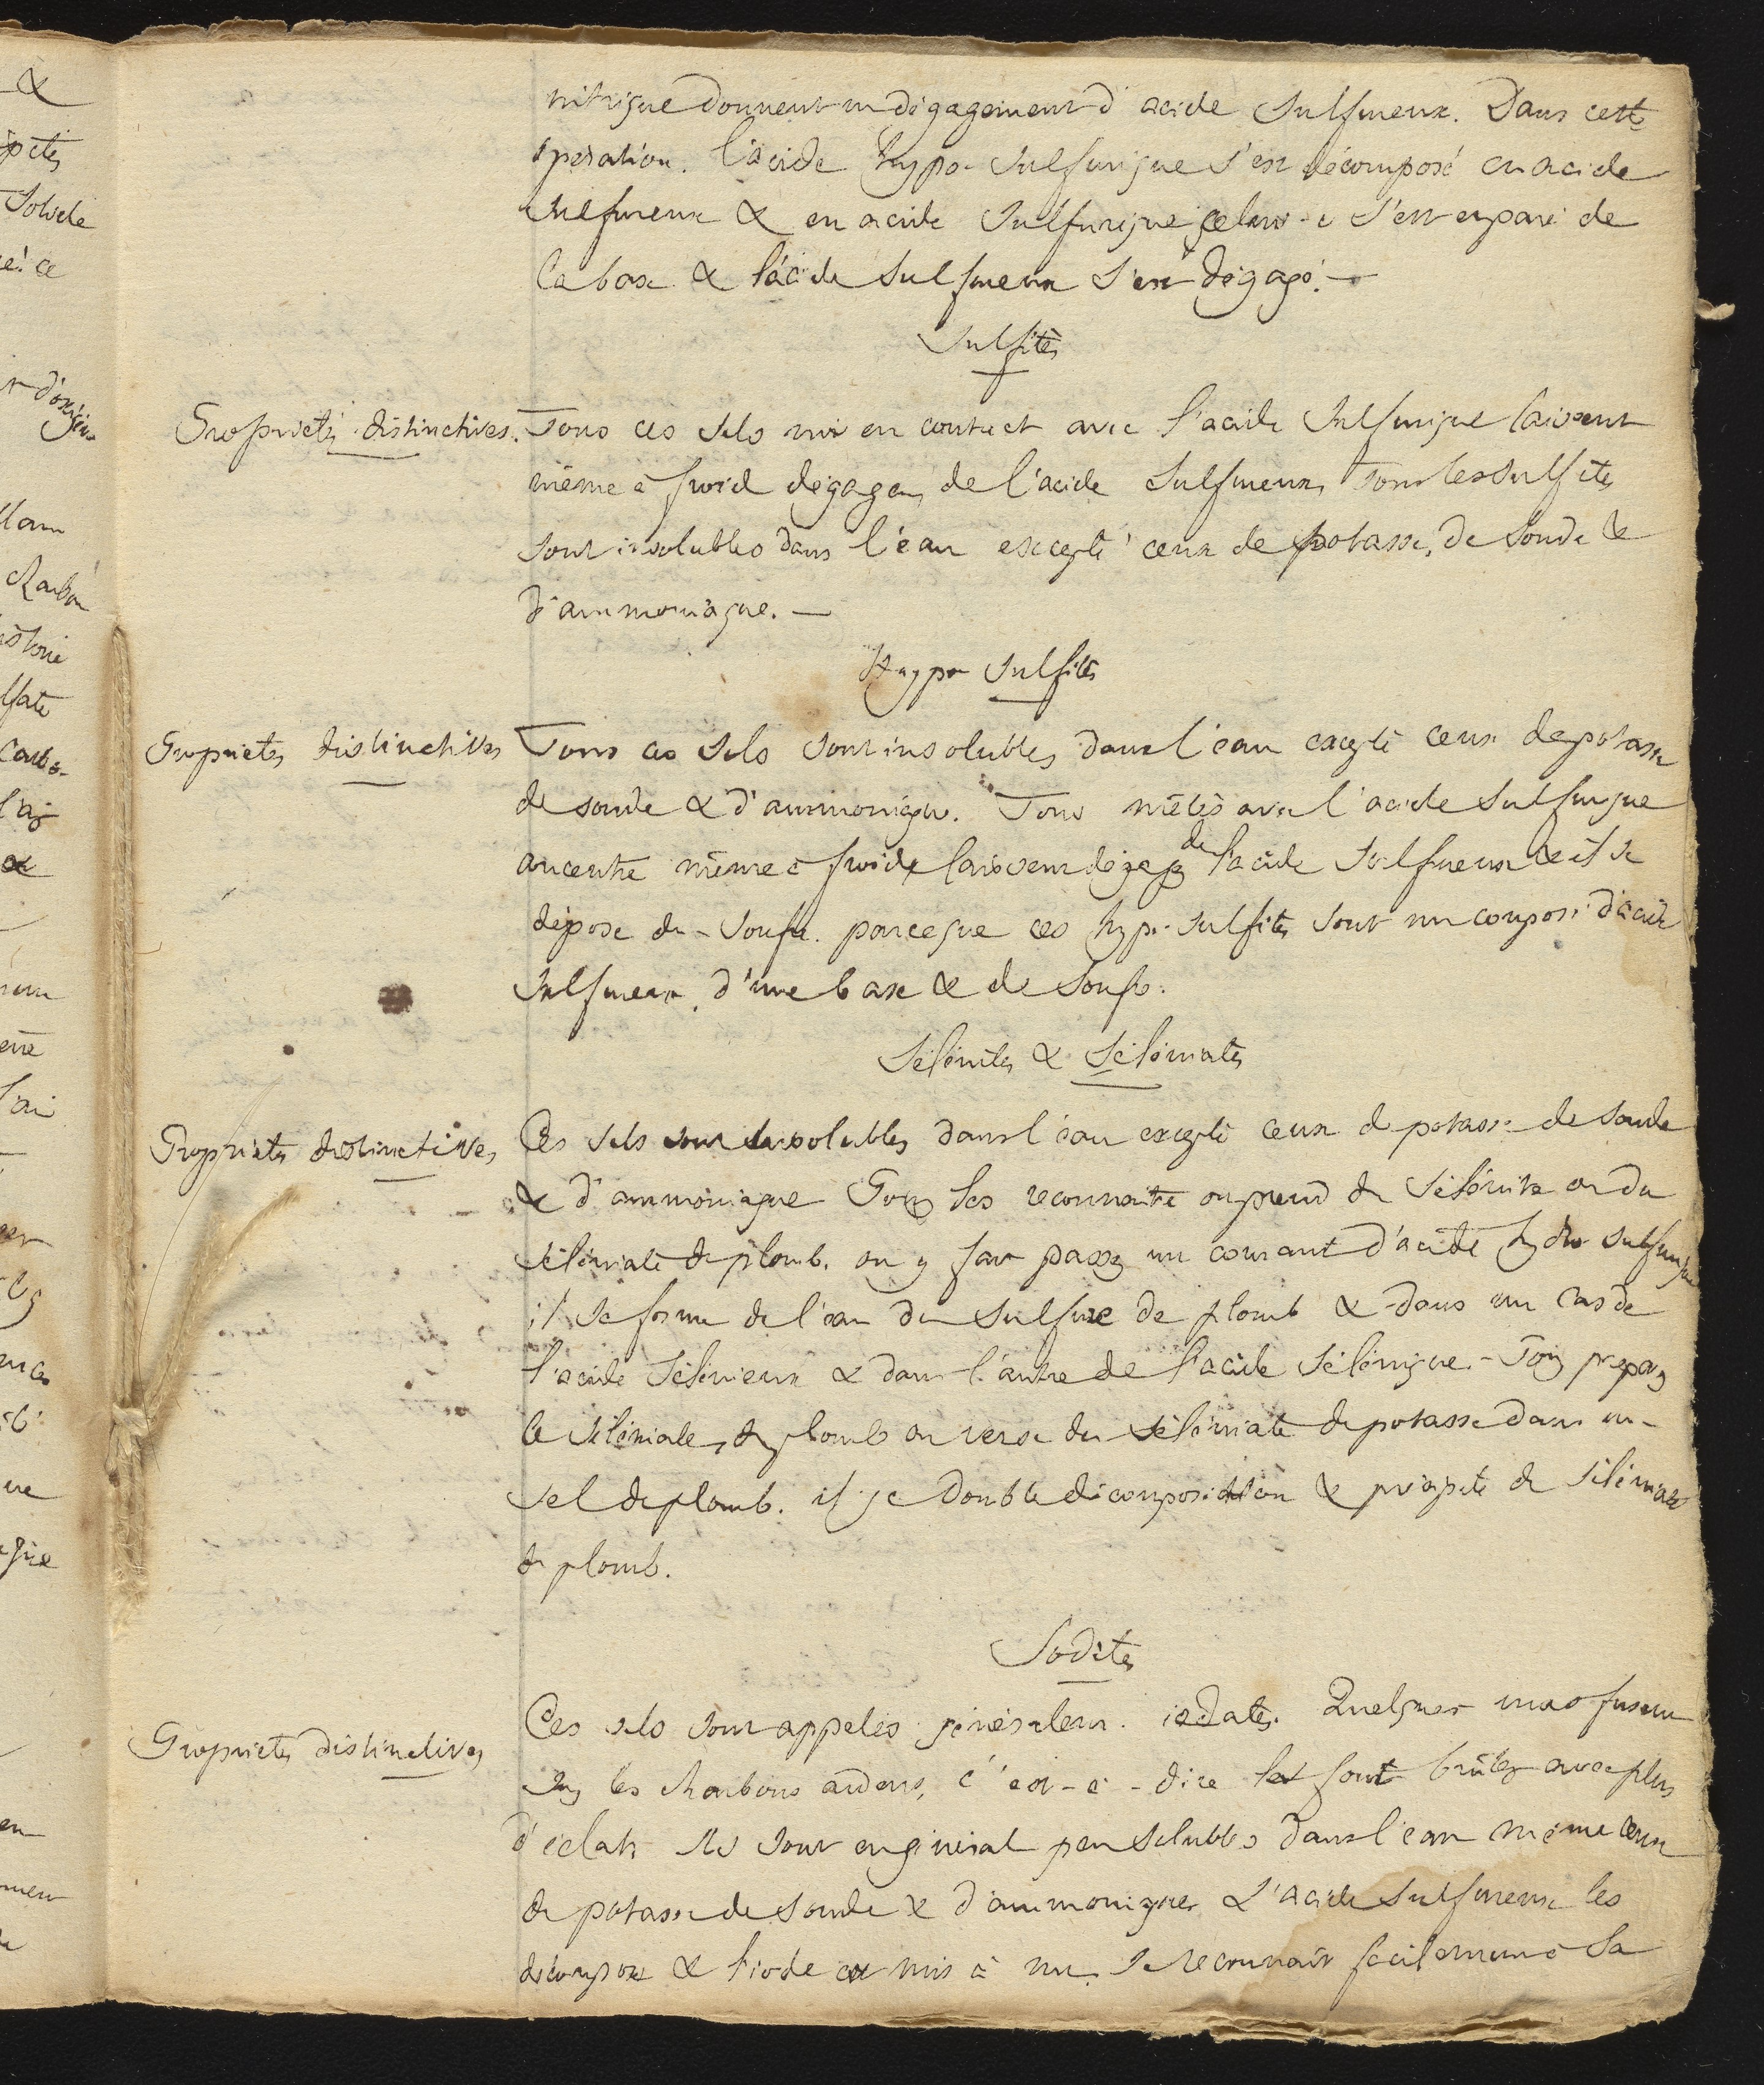 nitrique donnent un dégagement d'acide sulfureux. Dans cette
opération. l'acide hypo-sulfurique s'est décomposé en acide
sulfureux & en acide sulfurique celui-ci s'est emparé de
la base & l'acide sulfureux s'est dégagé. —
Sulfites
Propriétés distinctives. Tous ces sels mis en contact avec l'acide sulfurique laissent
même à froid dégager de l'acide sulfureux, tous les sulfites
sont insolubles dans l'eau excepté ceux de potasse, de soude &
d'ammoniaque. —
Hypo sulfites
Propriétés distinctives Tous ces sels sont insolubles dans l'eau excepté ceux de potasse
de soude & d'ammoniaque. Tous mêlés avec l'acide sulfurique
concentré même à froid laissent dégager de l'acide sulfureux & il se
dépose du soufre. parceque ces hypo-sulfites sont un composé d'acide
sulfureux, d'une base & de soufre.
Sélénites & Séléniates
Propriétés distinctives Ces sels sont insolubles dans l'eau excepté ceux de potasse de soude
& d'ammoniaque Pour les reconnaitre on prend du sélénite ou du
séléniate de plomb. on y fait passer un courant d'acide hydro sulfurique
il se forme de l'eau du sulfure de plomb & dans un cas de
l'acide sélénieux & dans l'autre de l'acide sélénique. - Pour préparer
le séléniate de plomb on verse du séléniate de potasse dans un
sel de plomb. il y a double décomposition & précipité de séléniate
de plomb.
Iodites
Propriétés distinctives Ces sels sont appelés généralem. iodates. Quelques uns fusent
sur les charbons ardens, c'est-à-dire les font brûler avec plus
d'éclats Ils sont en général peu solubles dans l'eau même ceux
de potasse de soude & d'ammoniaque L'acide sulfureux les
décompose & l'iode est mis à nu. se reconnait facilement à sa